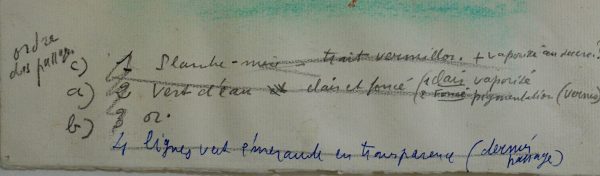 ordre
des passages
c) 1 Planche-mère trait vermillon. + vaporisé au sucre.
a) 2 Vert d'eau clair et foncé (1 clair vaporisé
2 foncé pigmentation (vernis)
b) 3 or.
4 lignes vert émeraude en transparence (dernier
passage)